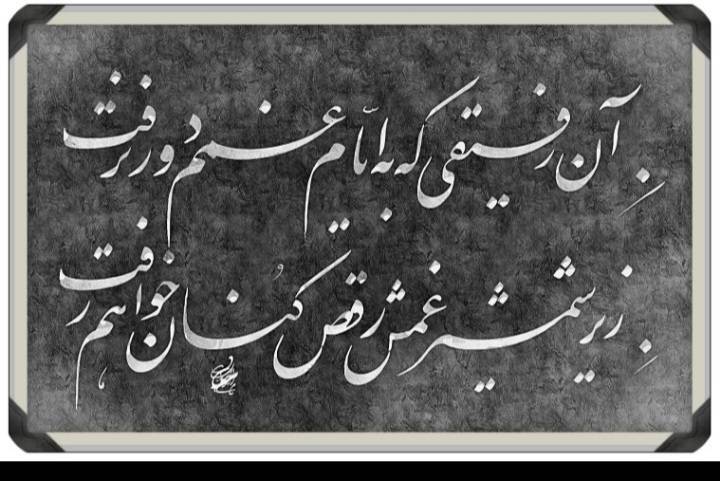 آن رفیقی که به ایّام غمم دور نرفت
زیر شمشیر غمش رقص کُنان خواهم رفت